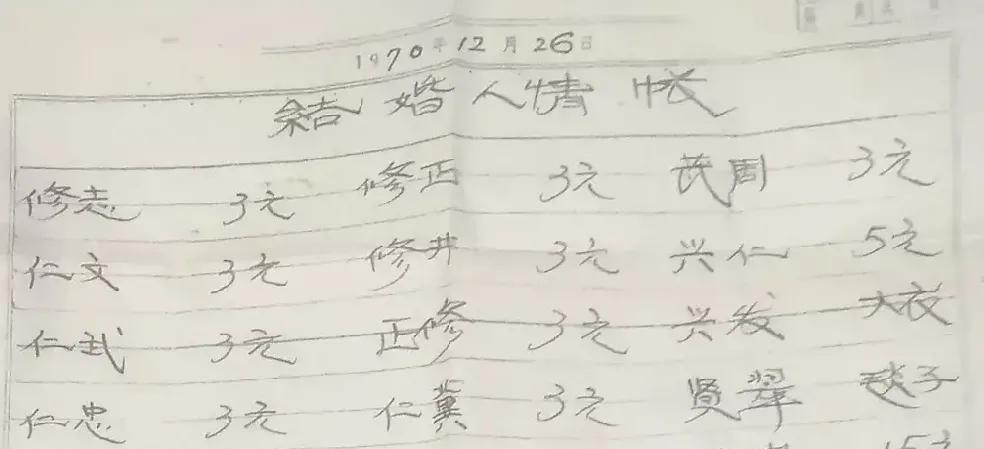 1970年12月26日
結婚人情帐
修志 3元 修正 3元 茂周 3元
仁文 3元 修井 3元 兴仁 5元
仁武 3元 正修 3元 兴发 大衣
仁忠 3元 仁冀 3元 贤翠 毯子
15元